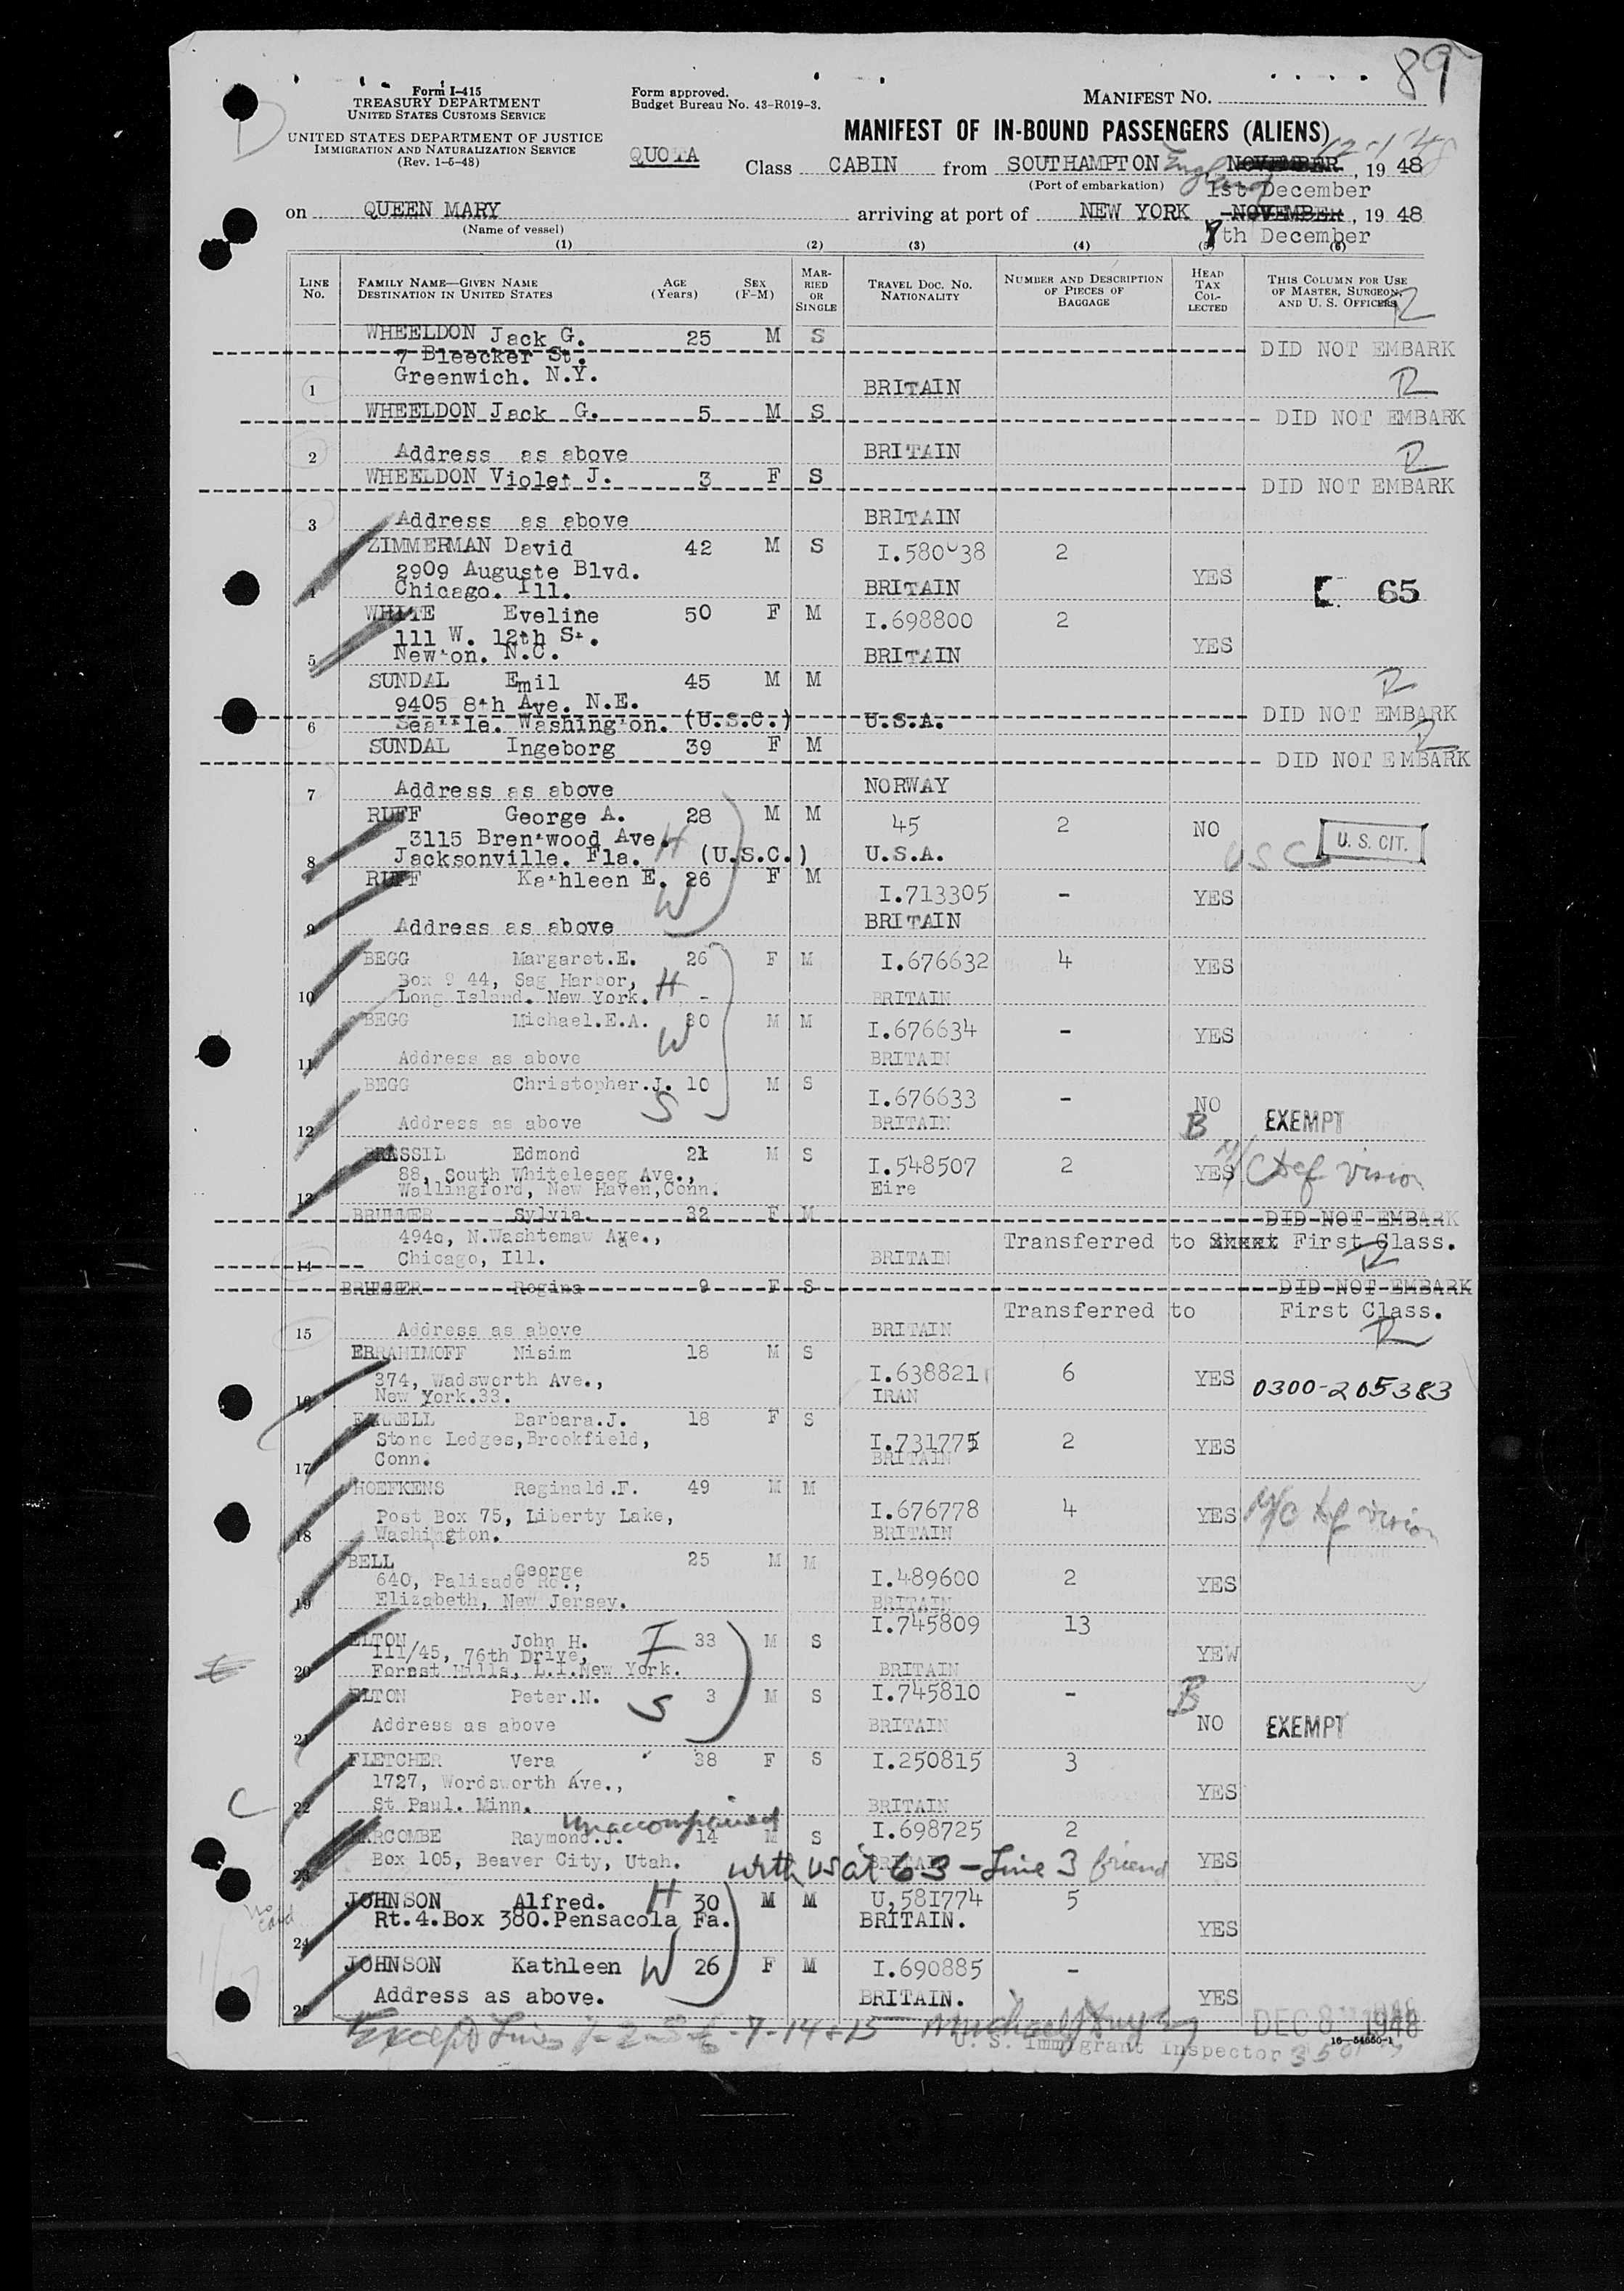 89
Form I-415
TREASURY DEPARTMENT
UNITED STATES CUSTOMS SERVICE
UNITED STATES DEPARTMENT OF JUSTICE
IMMIGRATION AND NATURALIZATION SERVICE
(Rev. 1-5-48)
Form approved.
Budget Bureau No. 43-R019-3.
MANIFEST NO.
MANIFEST OF IN-BOUND PASSENGERS (ALIENS)
12-1-48
QUOTA Class CABIN from SOUTHAMPTON England NOVEMBER, 19 48
(Port of embarkation) 1st December
on QUEEN MARY arriving at port of NEW YORK NOVEMBER, 19 48
(Name of vessel) 7th December
(1) (2) (3) (4) (5) (6)
LINE No. FAMILY NAME—GIVEN NAME DESTINATION IN UNITED STATES AGE (Years) SEX (F-M) MARRIED OR SINGLE TRAVEL DOC. NO. NATIONALITY NUMBER AND DESCRIPTION OF PIECES OF BAGGAGE HEAD TAX COLLECTED THIS COLUMN FOR USE OF MASTER, SURGEON, AND U. S. OFFICERS
WHEELDON Jack G. 25 M S
7 Bleecker St. DID NOT EMBARK
Greenwich. N.Y.
1 BRITAIN
WHEELDON Jack G. 5 M S DID NOT EMBARK
2 Address as above BRITAIN
WHEELDON Violet J. 3 F S DID NOT EMBARK
3 Address as above BRITAIN
ZIMMERMAN David 42 M S I.580038 2
2909 Auguste Blvd. YES
4 Chicago. Ill. BRITAIN 65
WHITE Eveline 50 F M I.698800 2
111 W. 12th St. YES
5 Newton. N.C. BRITAIN
SUNDAL Emil 45 M M
9405 8th Ave. N.E. DID NOT EMBARK
6 Seattle. Washington. (U.S.C.) U.S.A.
SUNDAL Ingeborg 39 F M DID NOT EMBARK
7 Address as above NORWAY
RUFF George A. 28 M M 45 2 NO
3115 Brentwood Ave. H U. S. CIT.
8 Jacksonville. Fla. (U.S.C.) U.S.A. USC
RUFF Kathleen E. 26 F M I.713305 - YES
W
9 Address as above BRITAIN
BEGG Margaret.E. 26 F M I.676632 4 YES
Box 9 44, Sag Harbor, H
10 Long Island. New York. - BRITAIN
BEGG Michael.E.A. 30 M M I.676634 - YES
W
11 Address as above BRITAIN
BEGG Christopher.J. 10 M S I.676633 - NO
S
12 Address as above BRITAIN B EXEMPT
BRASSIL Edmond 21 M S I.548507 2 YES M/C def vision
88, South Whiteleseg Ave.,
13 Wallingford, New Haven,Conn. Eire
BRUMER Sylvia. 32 F M DID NOT EMBARK
4940, N.Washtemaw Ave., Transferred to First Class.
14 Chicago, Ill. BRITAIN
BRUMER Regina 9 F S DID NOT EMBARK
Transferred to First Class.
15 Address as above BRITAIN
EBRAHIMOFF Nisim 18 M S I.638821 6 YES
374, Wadsworth Ave., 0300-205383
16 New York.33. IRAN
FARRELL Barbara.J. 18 F S
Stone Ledges,Brookfield, I.731775 2 YES
17 Conn. BRITAIN
HOEFKENS Reginald.F. 49 M M
Post Box 75, Liberty Lake, I.676778 4 YES M/C def vision
18 Washington. BRITAIN
BELL George 25 M M
640, Palisade Rd., I.489600 2 YES
19 Elizabeth, New Jersey. BRITAIN
ELTON John H. 33 M S I.745809 13
111/45, 76th Drive, YEW
20 Forest Hills, L.I.New York. BRITAIN
ELTON Peter.N. S 3 M S I.745810 - B
21 Address as above BRITAIN NO EXEMPT
FLETCHER Vera 38 F S I.250815 3
1727, Wordsworth Ave., YES
C 22 St Paul. Minn. BRITAIN
unaccompained
HARCOMBE Raymond.J. 14 M S I.698725 2
23 Box 105, Beaver City, Utah. BRITAIN YES
with us at 63 - Line 3 friend
JOHNSON Alfred. H 30 M M U,581774 5
no card Rt.4.Box 380.Pensacola Fa. BRITAIN. YES
24
JOHNSON Kathleen W 26 F M I.690885 -
25 Address as above. BRITAIN. YES
Except Lines 1-2-3-6-7-14+15 DEC 8 1948
U. S. Immigrant Inspector
16—54650-1